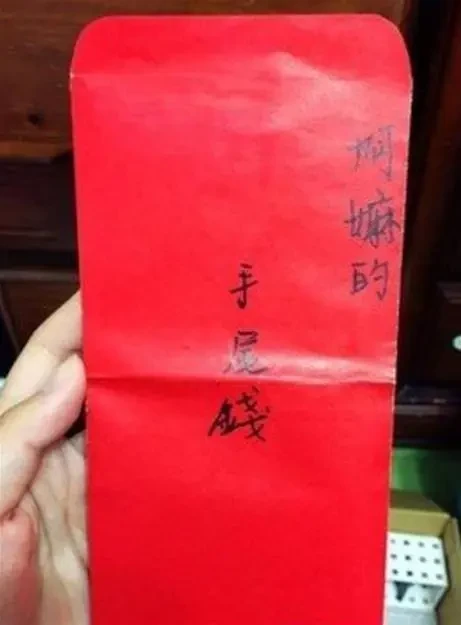 阿嫲的
手尾錢